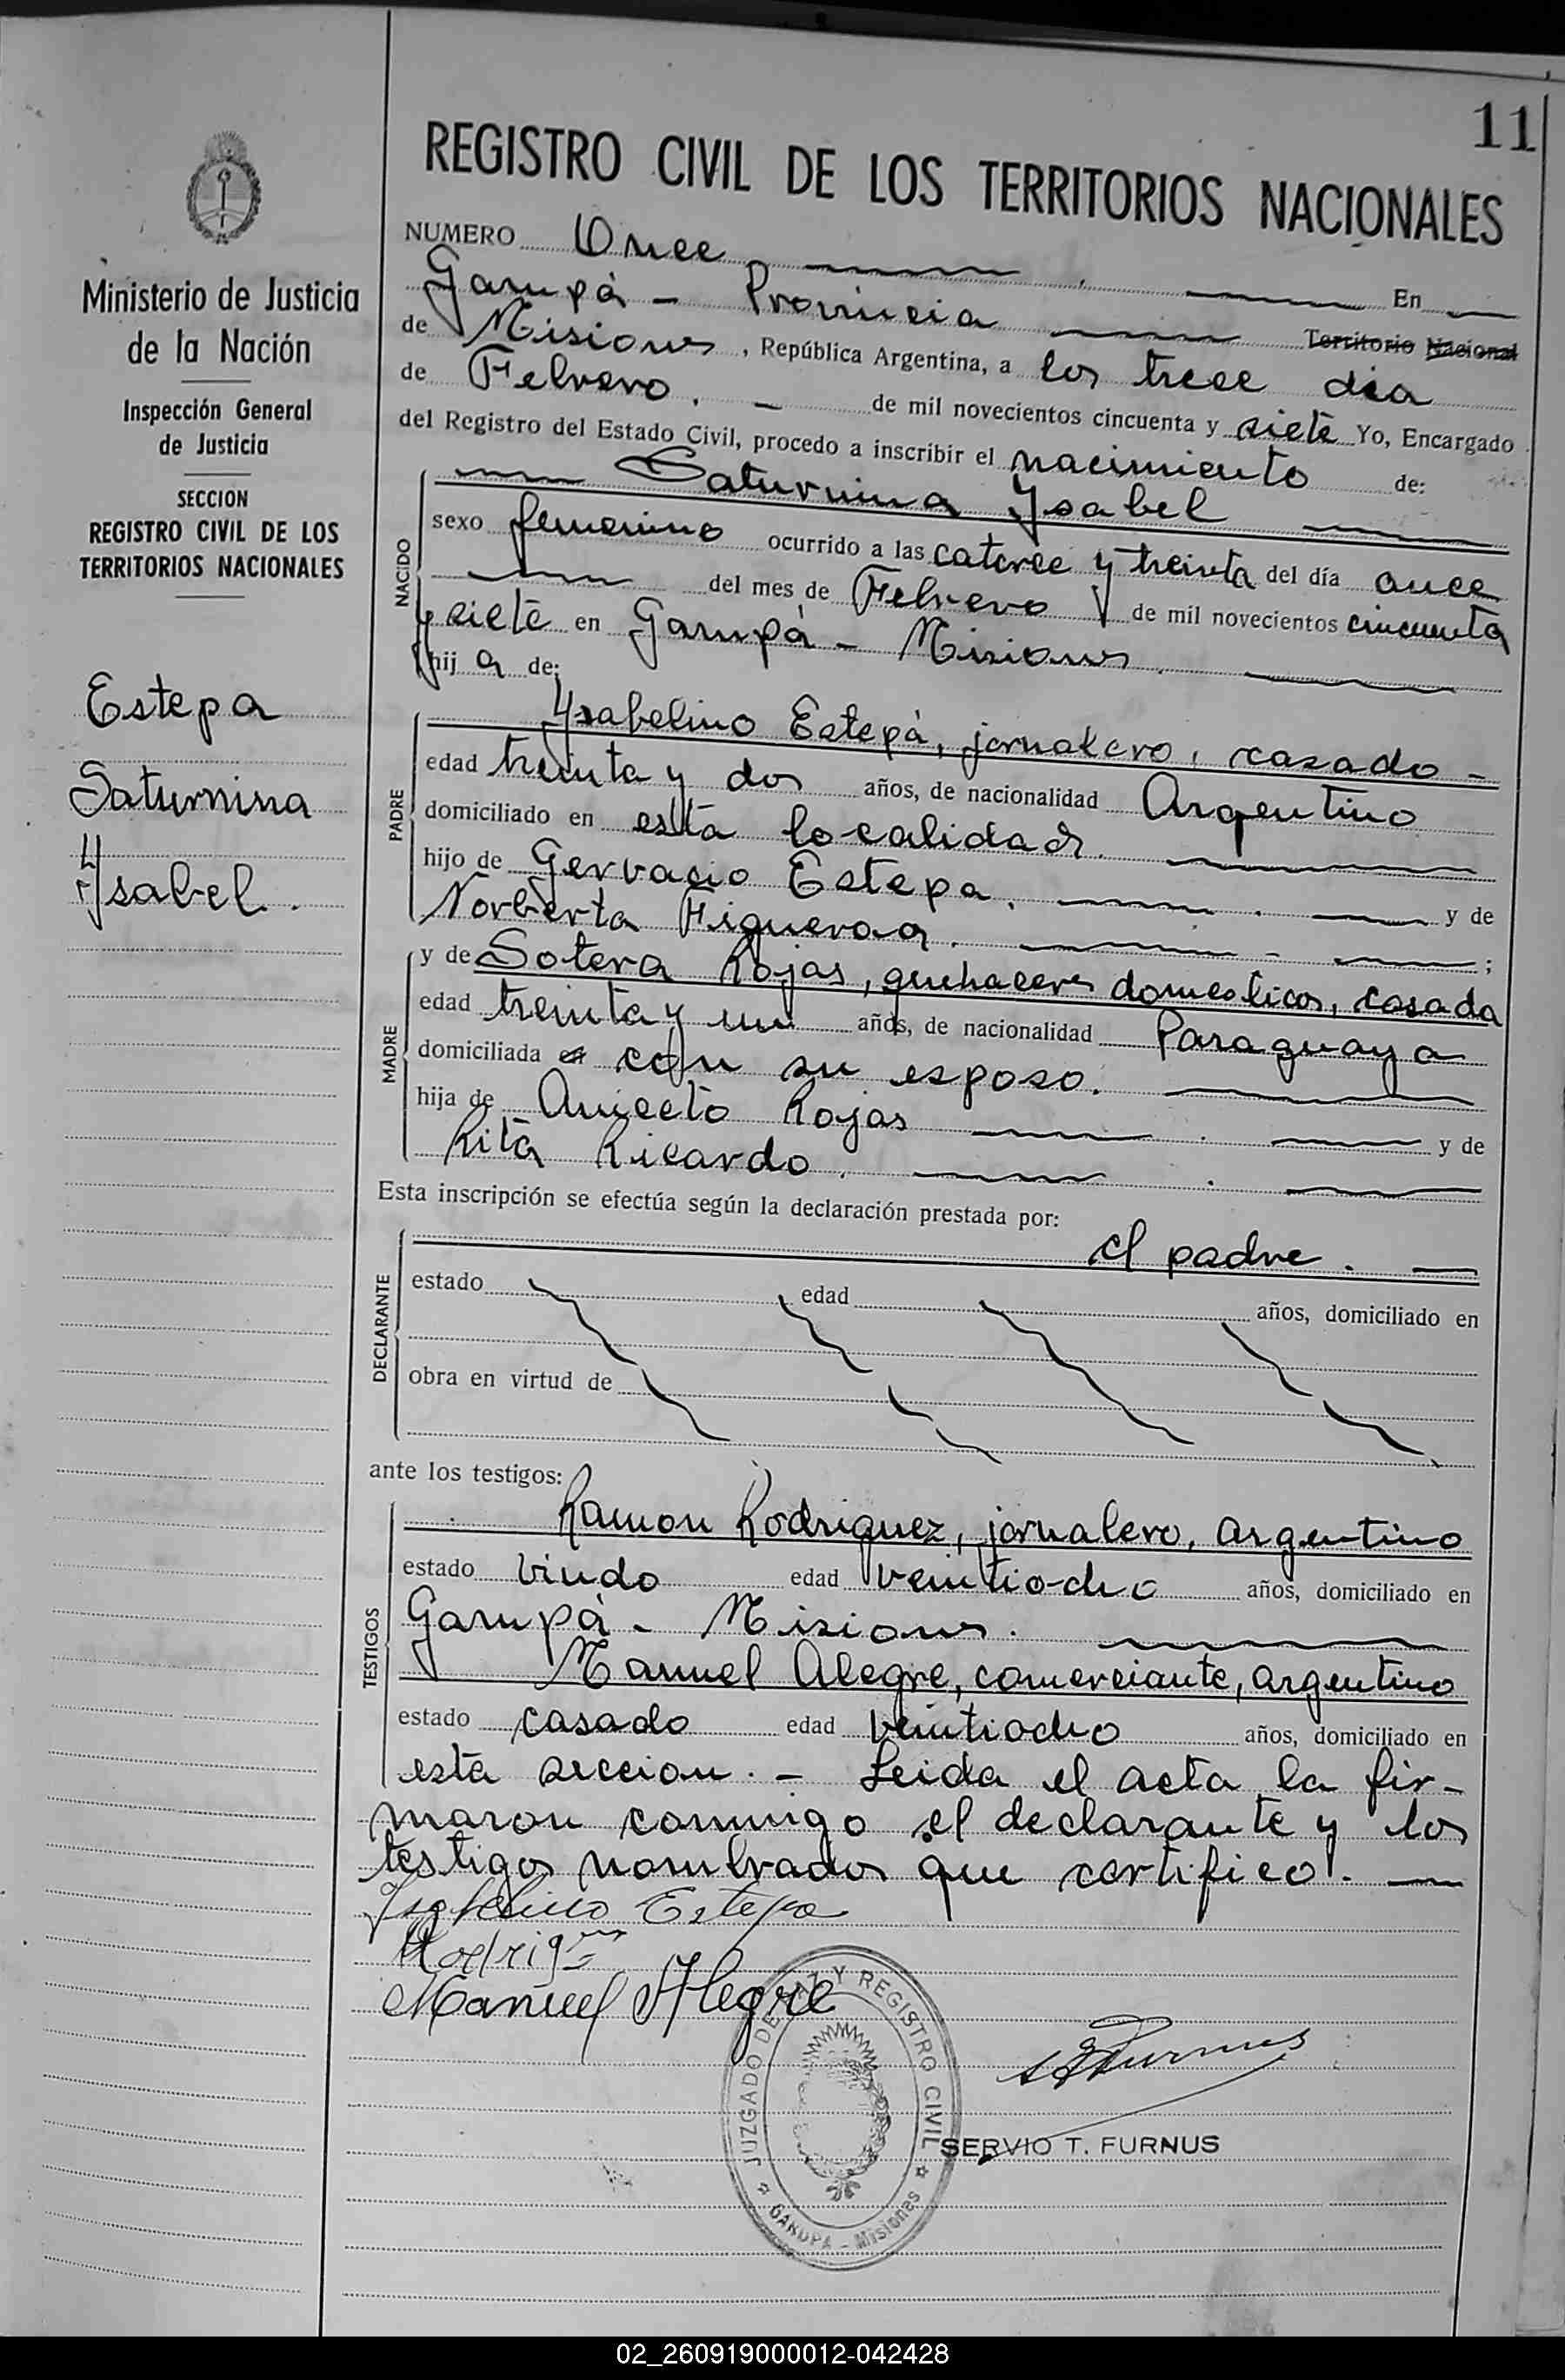 11
REGISTRO CIVIL DE LOS TERRITORIOS NACIONALES
Ministerio de Justicia
de la Nación
Inspección General
de Justicia
SECCION
REGISTRO CIVIL DE LOS
TERRITORIOS NACIONALES
Estepa
Saturnina
Ysabel.
NUMERO Once En
Garupá - Provincia Territorio Nacional
de Misiones, República Argentina, a los trece dia
de Febrero. - de mil novecientos cincuenta y siete Yo, Encargado
del Registro del Estado Civil, procedo a inscribir el nacimiento de:
NACIDO
Saturnina Ysabel
sexo femenino ocurrido a las catorce y treinta del día once
del mes de Febrero de mil novecientos cincuenta
y siete en Garupá - Misiones.
hija de:
PADRE
Ysabelino Estepá, jornalero, casado -
edad treinta y dos años, de nacionalidad Argentino
domiciliado en esta localidad.
hijo de Gervacio Estepa. y de
Norberta Figueroa. - ;
MADRE
y de Sotera Rojas, quehaceres domesticos, casada
edad treinta y un años, de nacionalidad Paraguaya
domiciliada con su esposo.
hija de Aniceto Rojas y de
Rita Ricardo.
Esta inscripción se efectúa según la declaración prestada por:
DECLARANTE
el padre.
estado edad años, domiciliado en
obra en virtud de
ante los testigos:
TESTIGOS
Ramon Rodriguez, jornalero, argentino
estado viudo edad veintiocho años, domiciliado en
Garupá - Misiones.
Manuel Alegre, comerciante, argentino
estado casado edad veintiocho años, domiciliado en
esta seccion. - Leida el acta la fir-
maron conmigo el declarante y los
testigos nombrados que certifico.
Isabelino Estepa
Manuel Alegre
JUZGADO DE PAZ Y REGISTRO CIVIL
GARUPA - Misiones
SERVIO T. FURNUS
02_260919000012-042428